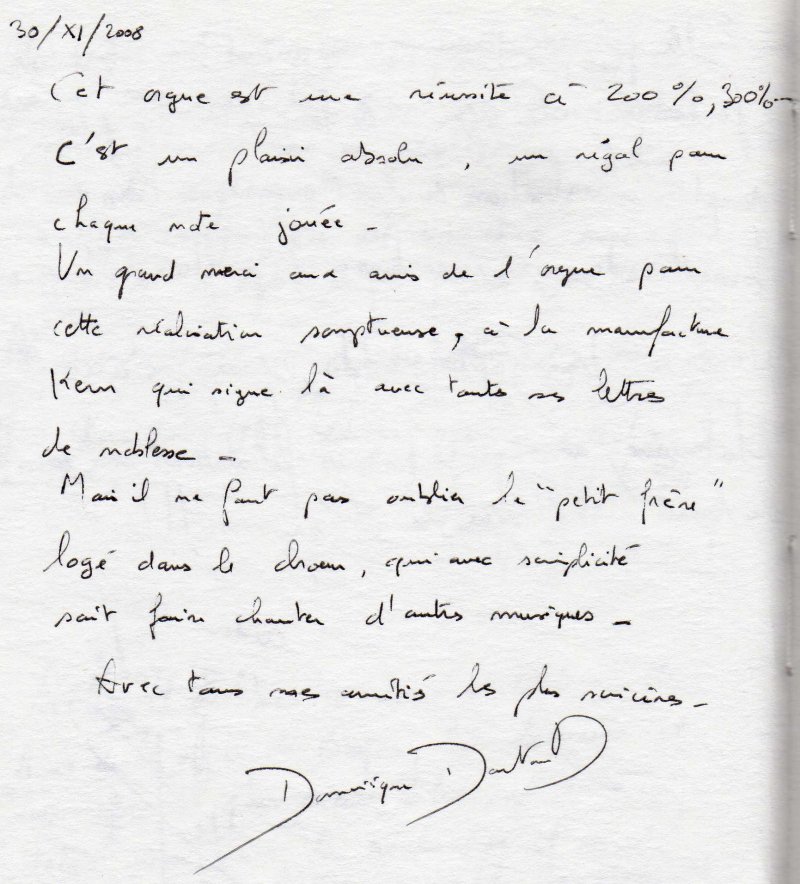 30/XI/2008
Cet orgue est une réussite à 200%, 300% -
C'est un plaisir absolu, un régal pour
chaque note jouée -
Un grand merci aux amis de l'orgue pour
cette réalisation somptueuse, à la manufacture
Kern qui signe là avec toutes ses lettres
de noblesse -
Mais il ne faut pas oublier le "petit frère"
logé dans le chœur, qui avec simplicité
sait faire chanter d'autres musiques -
Avec toutes mes amitiés les plus sincères -
Dominique